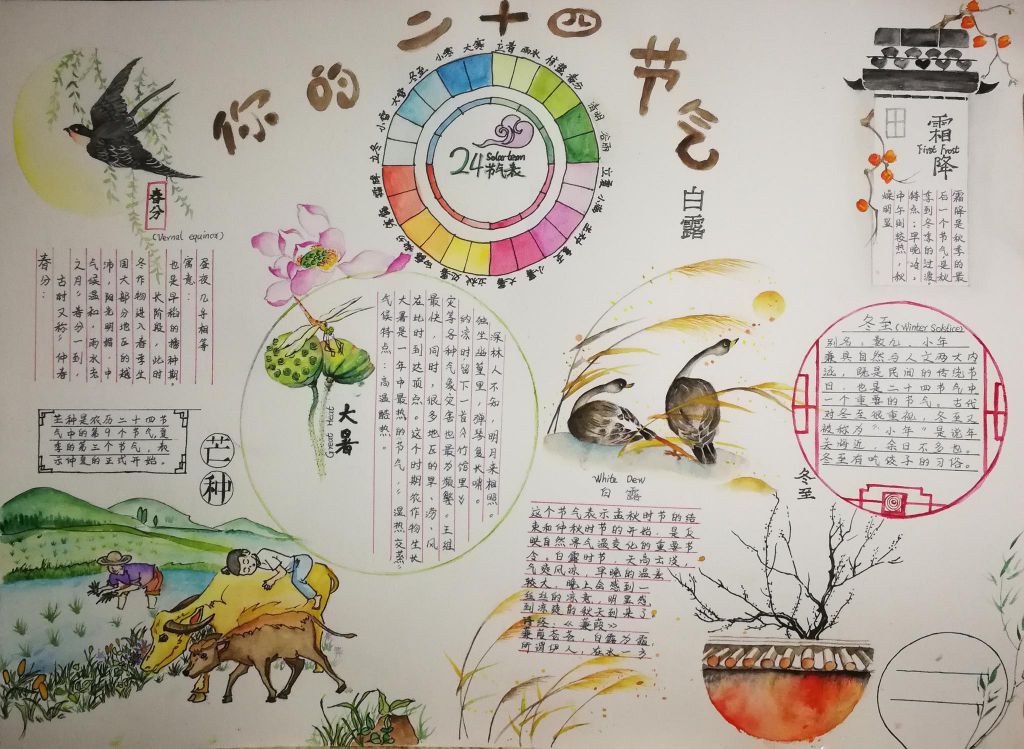 你的二十四节气
立春
雨水
惊蛰
春分
清明
谷雨
立夏
小满
芒种
夏至
小暑
大暑
立秋
处暑
白露
秋分
寒露
霜降
立冬
小雪
大雪
冬至
小寒
大寒
24 Solar term
节气表
春分
(Vernal equinox)
春分：
古时又称"仲春
之月"春分一到，
气候温和，雨水充
沛，阳光明媚，中
国大部分地区的越
冬作物进入春季生
长阶段，此时
也是早稻的播种期。
寓意：
昼夜几乎相等
芒种是农历二十四节
气中的第9个节气，夏
季的第三个节气，表
示仲夏的正式开始。
芒种
气候特点：高温酷热。
大暑是一年中最热的节气，"湿热交蒸"
在此时到达顶点。这个时期农作物生长
最快，同时，很多地区的旱、涝、风
灾等各种气象灾害也最为频繁。王维
纳凉时留下一首《竹馆里》
独坐幽篁里，弹琴复长啸。
深林人不知，明月来相照。
大暑
Great Heat
白露
White Dew
白露
这个节气表示孟秋时节的结
束和仲秋时节的开始，是反
映自然界气温变化的重要节
令。白露时节，天高云淡，
气爽风凉，早晚的温差
较大，晚上会感到一
丝丝的凉意，明显感
到凉爽的秋天到来了。
诗经：《蒹葭》
蒹葭苍苍，白露为霜，
所谓伊人，在水一方
霜降
First Frost
霜降是秋季的最
后一个节气，是秋
季到冬季的过渡
特点：早晚冷，
中午则较热，秋
燥明显
冬至(Winter Solstice)
别名：数九、小年
兼具自然与人文两大内
涵，既是民间的传统节
日，也是二十四节气中
一个重要的节气。古代
对冬至很重视，冬至又
被称为"小年"是说年
关将近，余日不多也。
冬至有吃饺子的习俗。
冬至